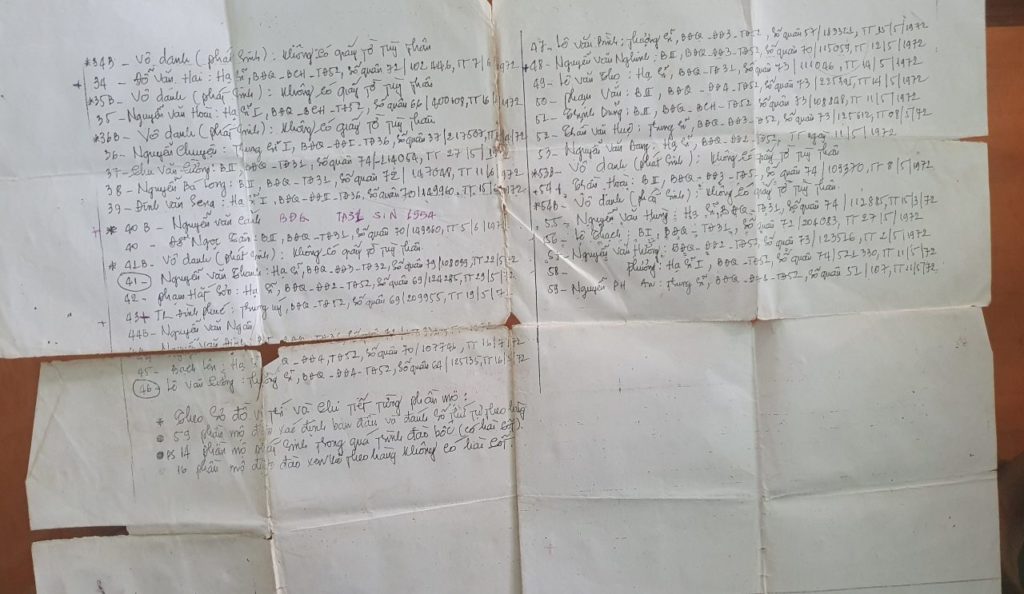 *34B - Vô danh (phát sinh): Không có giấy tờ tùy thân
34 - Đỗ Văn Hai: Hạ Sĩ, BĐQ - BCH - TĐ52, Số quân 72/102446, TT 7/6/1972
*35B - Vô danh (phát sinh): Không có giấy tờ tùy thân
35 - Nguyễn Văn Hoài: Hạ Sĩ I, BĐQ - BCH - TĐ52, Số quân 66/400408, TT 16/
*36B - Vô danh (phát sinh): Không có giấy tờ tùy thân
36 - Nguyễn Chuyên: Trung Sĩ I, BĐQ - ĐĐI - TĐ36, Số quân 37/217567, TT
37 - Chu Văn Cường: BII, BĐQ - TĐ31, Số quân 74/214054, TT 27/5/1972
38 - Nguyễn Bá Long: BII, BĐQ - TĐ31, Số quân 72/147048, TT 11/6/1972
39 - Đinh Văn Seng: Hạ Sĩ I, BĐQ - ĐĐI - TĐ36, Số quân 70/149960, TT 15/6/1972
* 40B - Nguyễn Văn Cảnh BĐQ TĐ31 SIN 1954
40 - Ngọc BII, BĐQ - TĐ31, Số quân 70/149960, TT 15/6/1972
* 41B - Vô danh (phát sinh): Không có giấy tờ tùy thân
41 - Nguyễn Văn Thanh: Hạ Sĩ, BĐQ - ĐĐ3 - TĐ32, Số quân 79/108099, TT 22/5/72
42 - Phạm Hạ Sĩ, BĐQ - ĐĐ2 - TĐ52, Số quân 69/124285, TT 19/5/72
43 Đình Phúc: Trung úy, BĐQ - TĐ52, Số quân 69/209955, TT 19/5/7
44B - Nguyễn Văn Ngân
45 - Bạch Hạ Q - ĐĐ4, TĐ52, Số quân 70/107746, TT 16/7/72
46 - Lê Văn Cường: Thượng Sĩ, BĐQ - ĐĐ4 - TĐ52, Số quân 64/125135, TT 16/5/72
* Theo Sơ đồ vị trí và chi tiết từng phần mộ:
59 phần mộ xác định ban đầu và đánh số thứ tự theo hàng
14 phần mộ phát sinh trong quá trình đào bốc (có hài cốt).
16 phần mộ đào xen kẽ theo hàng không có hài cốt
47 - Lê Văn Bình: Thượng Sĩ, BĐQ - ĐĐ3 - TĐ52, Số quân 57/183521, TT 15/5/1972
*48 - Nguyễn Văn Nghinh: BII, BĐQ - ĐĐ3 - TĐ52, Số quân 70/115059, TT 12/5/1972
49 - Lê Văn Hạ Sĩ, BĐQ - TĐ31, Số quân 73/111046, TT 14/5/1972
50 - Phạm Văn: BII, BĐQ - ĐĐ4 - TĐ52, Số quân 73/225395, TT 14/5/1972
51 - Thịnh Dung: BII, BĐQ - BCH - TĐ52, Số quân 73/108848, TT 11/5/1972
52 - Trần Văn Huệ: Trung Sĩ, BĐQ - ĐĐ3 - TĐ52, Số quân 73/125612, TT 08/5/72
53 - Nguyễn Văn Hạ Sĩ, BĐQ - ĐĐ2 - TĐ52, TT ngày 11/5/1972
*53B - Vô danh (phát sinh): Không có giấy tờ tùy thân
*54 - Trần Hoài: BII, BĐQ - ĐĐ3 - TĐ5, Số quân 74/109370, TT 8/5/1972
*54B - Vô danh (phát sinh): Không có giấy tờ tùy thân
55 - Nguyễn Văn Hùng: Hạ Sĩ, BĐQ - TĐ31, Số quân 74/112885, TT 15/3/72
56 - Lê Thạch: BI, BĐQ - TĐ31, Số quân 72/204083, TT 27/5/1972
57 - Nguyễn Văn Hường: BĐQ - ĐĐ2 - TĐ52, Số quân 73/123526, TT 2/5/1972
58 - Phương: Hạ Sĩ I, BĐQ - ĐĐ2 - TĐ52, Số quân 74/521330, TT 11/5/72
59 - Nguyễn PH An: Trung Sĩ, BĐQ - ĐĐ2 - TĐ52, Số quân 52/107, TT 11/5/72